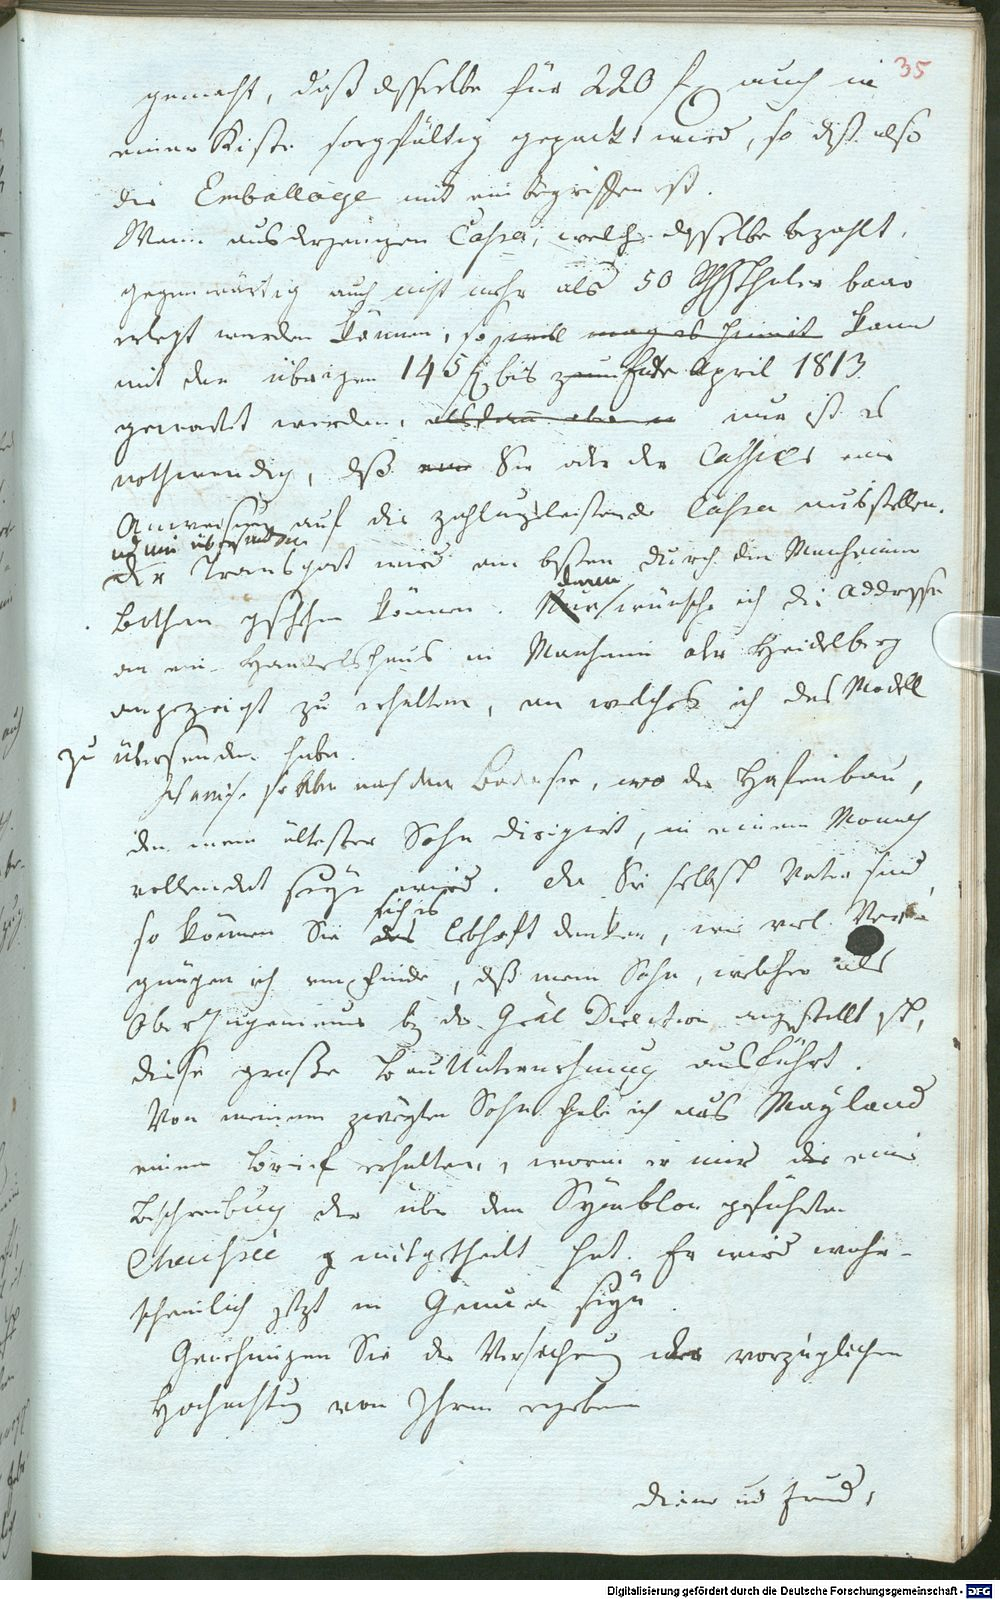 35
gemacht, daß dasselbe für 220 f auch in
einer Kiste sorgfältig gepackt wird, so daß also
die Emballage mit einbegriffen ist.
Wenn aus derjenigen Cassa, welche dasselbe bezahlt,
gegenwärtig auch nicht mehr als 50 Thaler baar
erlegt werden können, so mag es hiemit kann
mit den übrigen 145 f bis zum Ende April 1813
gewartet werden, alsdann aber nur ist es
nothwendig, daß Sie oder der Cassier eine
Anweisung auf die zahlungsleistende Cassa ausstellen.
und mir übersenden
Der Transport wird am besten durch die Manheimer
Bothen geschehen können. Nur wünsche ich die Addresse
an ein Handelshaus in Manheim oder Heidelberg
angezeigt zu erhalten, an welches ich das Modell
zu übersenden habe.
Ich reise selbst nach dem Bodensee, wo der Hafenbau,
den mein ältester Sohn dirigirt, in einem Monath
vollendet seyn wird. Da Sie selbst Vater sind,
sich es
so können Sie das lebhaft denken, wie viel Ver-
gnügen ich empfinde, daß mein Sohn, welcher als
Ober Ingenieur bey der Gral Direction angestellt ist,
diese große BauUnternehmung ausführt.
Von meinem zweyten Sohn habe ich aus Mayland
einen Brief erhalten, worin er mir die eine
Beschreibung der über den Symblon geführten
Chaussée mitgetheilt hat. Er wird wahr-
scheinlich jetzt in Genua seyn.
Genehmigen Sie die Versicherung der vorzüglichen
Hochachtung von Ihrem ergebenen
Diener und Freund,
Digitalisierung gefördert durch die Deutsche Forschungsgemeinschaft - DFG